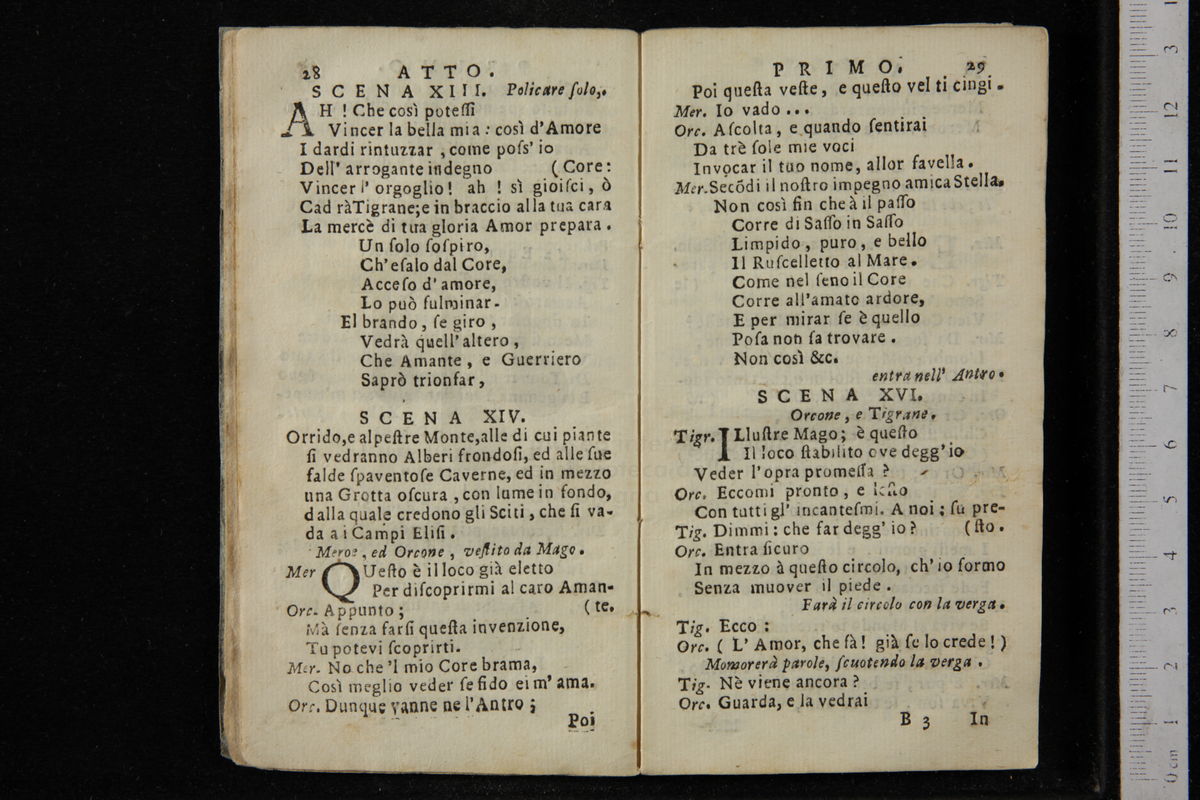 28 ATTO.
SCENA XIII. Policare ſolo,.
AH ! Che così poteſſi
Vincer la bella mia : così d'Amore
I dardi rintuzzar , come poſs' io
Dell' arrogante indegno (Core:
Vincer l' orgoglio ! ah ! sì gioiſci , ò
Cad ràTigrane;e in braccio alla tua cara
La mercè di tua gloria Amor prepara .
Un ſolo ſoſpiro,
Ch'eſalo dal Core,
Acceſo d' amore,
Lo può fulminar.
El brando , ſe giro ,
Vedrà quell' altero ,
Che Amante , e Guerriero
Saprò trionfar ,
SCENA XIV.
Orrido,e alpeſtre Monte,alle di cui piante
ſi vedranno Alberi frondoſi, ed alle ſue
falde ſpaventoſe Caverne, ed in mezzo
una Grotta oſcura , con lume in fondo,
dalla quale credono gli Sciti , che ſi va-
da a i Campi Eliſi .
Meroe , ed Orcone , veſtito da Mago .
Mer QUeſto è il loco già eletto
Per diſcoprirmi al caro Aman-
Orc. Appunto ; (te.
Mà ſenza farſi queſta invenzione,
Tu potevi ſcoprirti.
Mer. No che 'l mio Core brama,
Così meglio veder ſe fido ei m' ama.
Orc. Dunque vanne ne l'Antro ;
Poi
PRIMO. 29
Poi queſta veſte , e queſto vel ti cingi .
Mer. Io vado ...
Orc. Aſcolta, e quando ſentirai
Da trè ſole mie voci
Invocar il tuo nome, allor favella.
Mer.Secõdi il noſtro impegno amica Stella.
Non così fin che à il paſſo
Corre di Saſſo in Saſſo
Limpido , puro , e bello
Il Ruſcelletto al Mare.
Come nel ſeno il Core
Corre all'amato ardore,
E per mirar ſe è quello
Poſa non ſa trovare .
Non così &c.
entra nell' Antro.
SCENA XVI.
Orcone , e Tigrane.
Tigr. ILluſtre Mago ; è queſto
Il loco ſtabilito ove degg' io
Veder l'opra promeſſa ?
Orc. Eccomi pronto , e leſto
Con tutti gl' incanteſmi. A noi ; ſu pre-
Tig. Dimmi : che far degg' io ? (ſto.
Orc. Entra ſicuro
In mezzo à queſto circolo, ch' io formo
Senza muover il piede .
Farà il circolo con la verga.
Tig. Ecco :
Orc. ( L' Amor, che fà ! già ſe lo crede ! )
Momorerà parole, ſcuotendo la verga .
Tig. Nè viene ancora ?
Orc. Guarda, e la vedrai
B 3 In